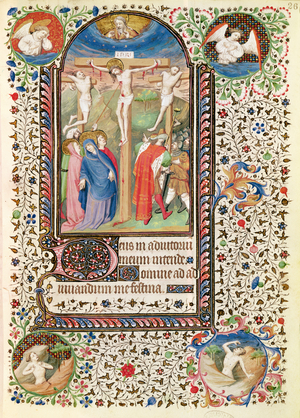 INRI
Deus in adiutoriu
meum intende.
Domine ad ad
iuuandum me festina.